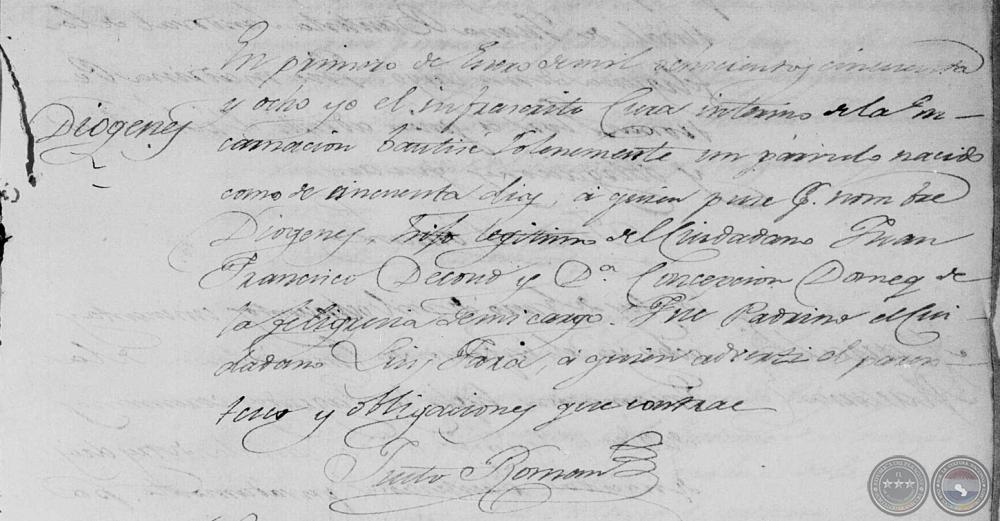 En primero de Enero de mil ochocientos cincuenta
y ocho yo el infrascrito Cura interino de la En-
Diogenes
carnacion bautise solenemente un párvulo nacido
como de cincuenta dias, á quien puse p.r nombre
Diogenes, hijo legitimo del Ciudadano Juan
Francisco Decoud y D.a Concepcion Domeq de
la feligresia de mi cargo. Fue Padrino el Ciu-
dadano Luis, á quien adverti el paren-
tesco y obligaciones que contrae
Justo Roman